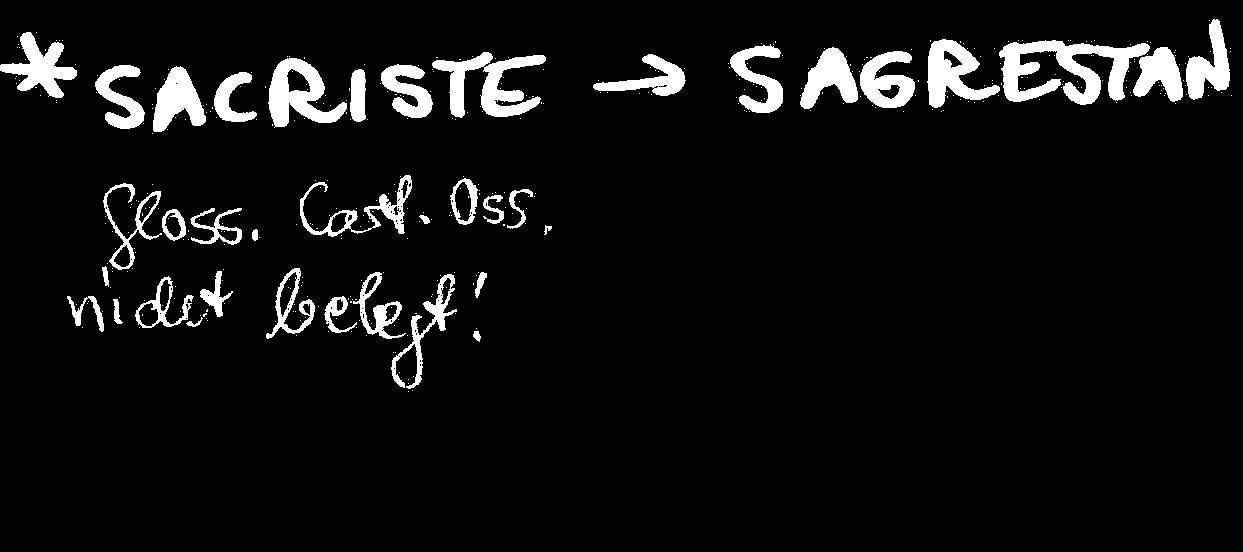 *SACRISTE → SAGRESTAN
Gloss. Cart. Oss.
nicht belegt!